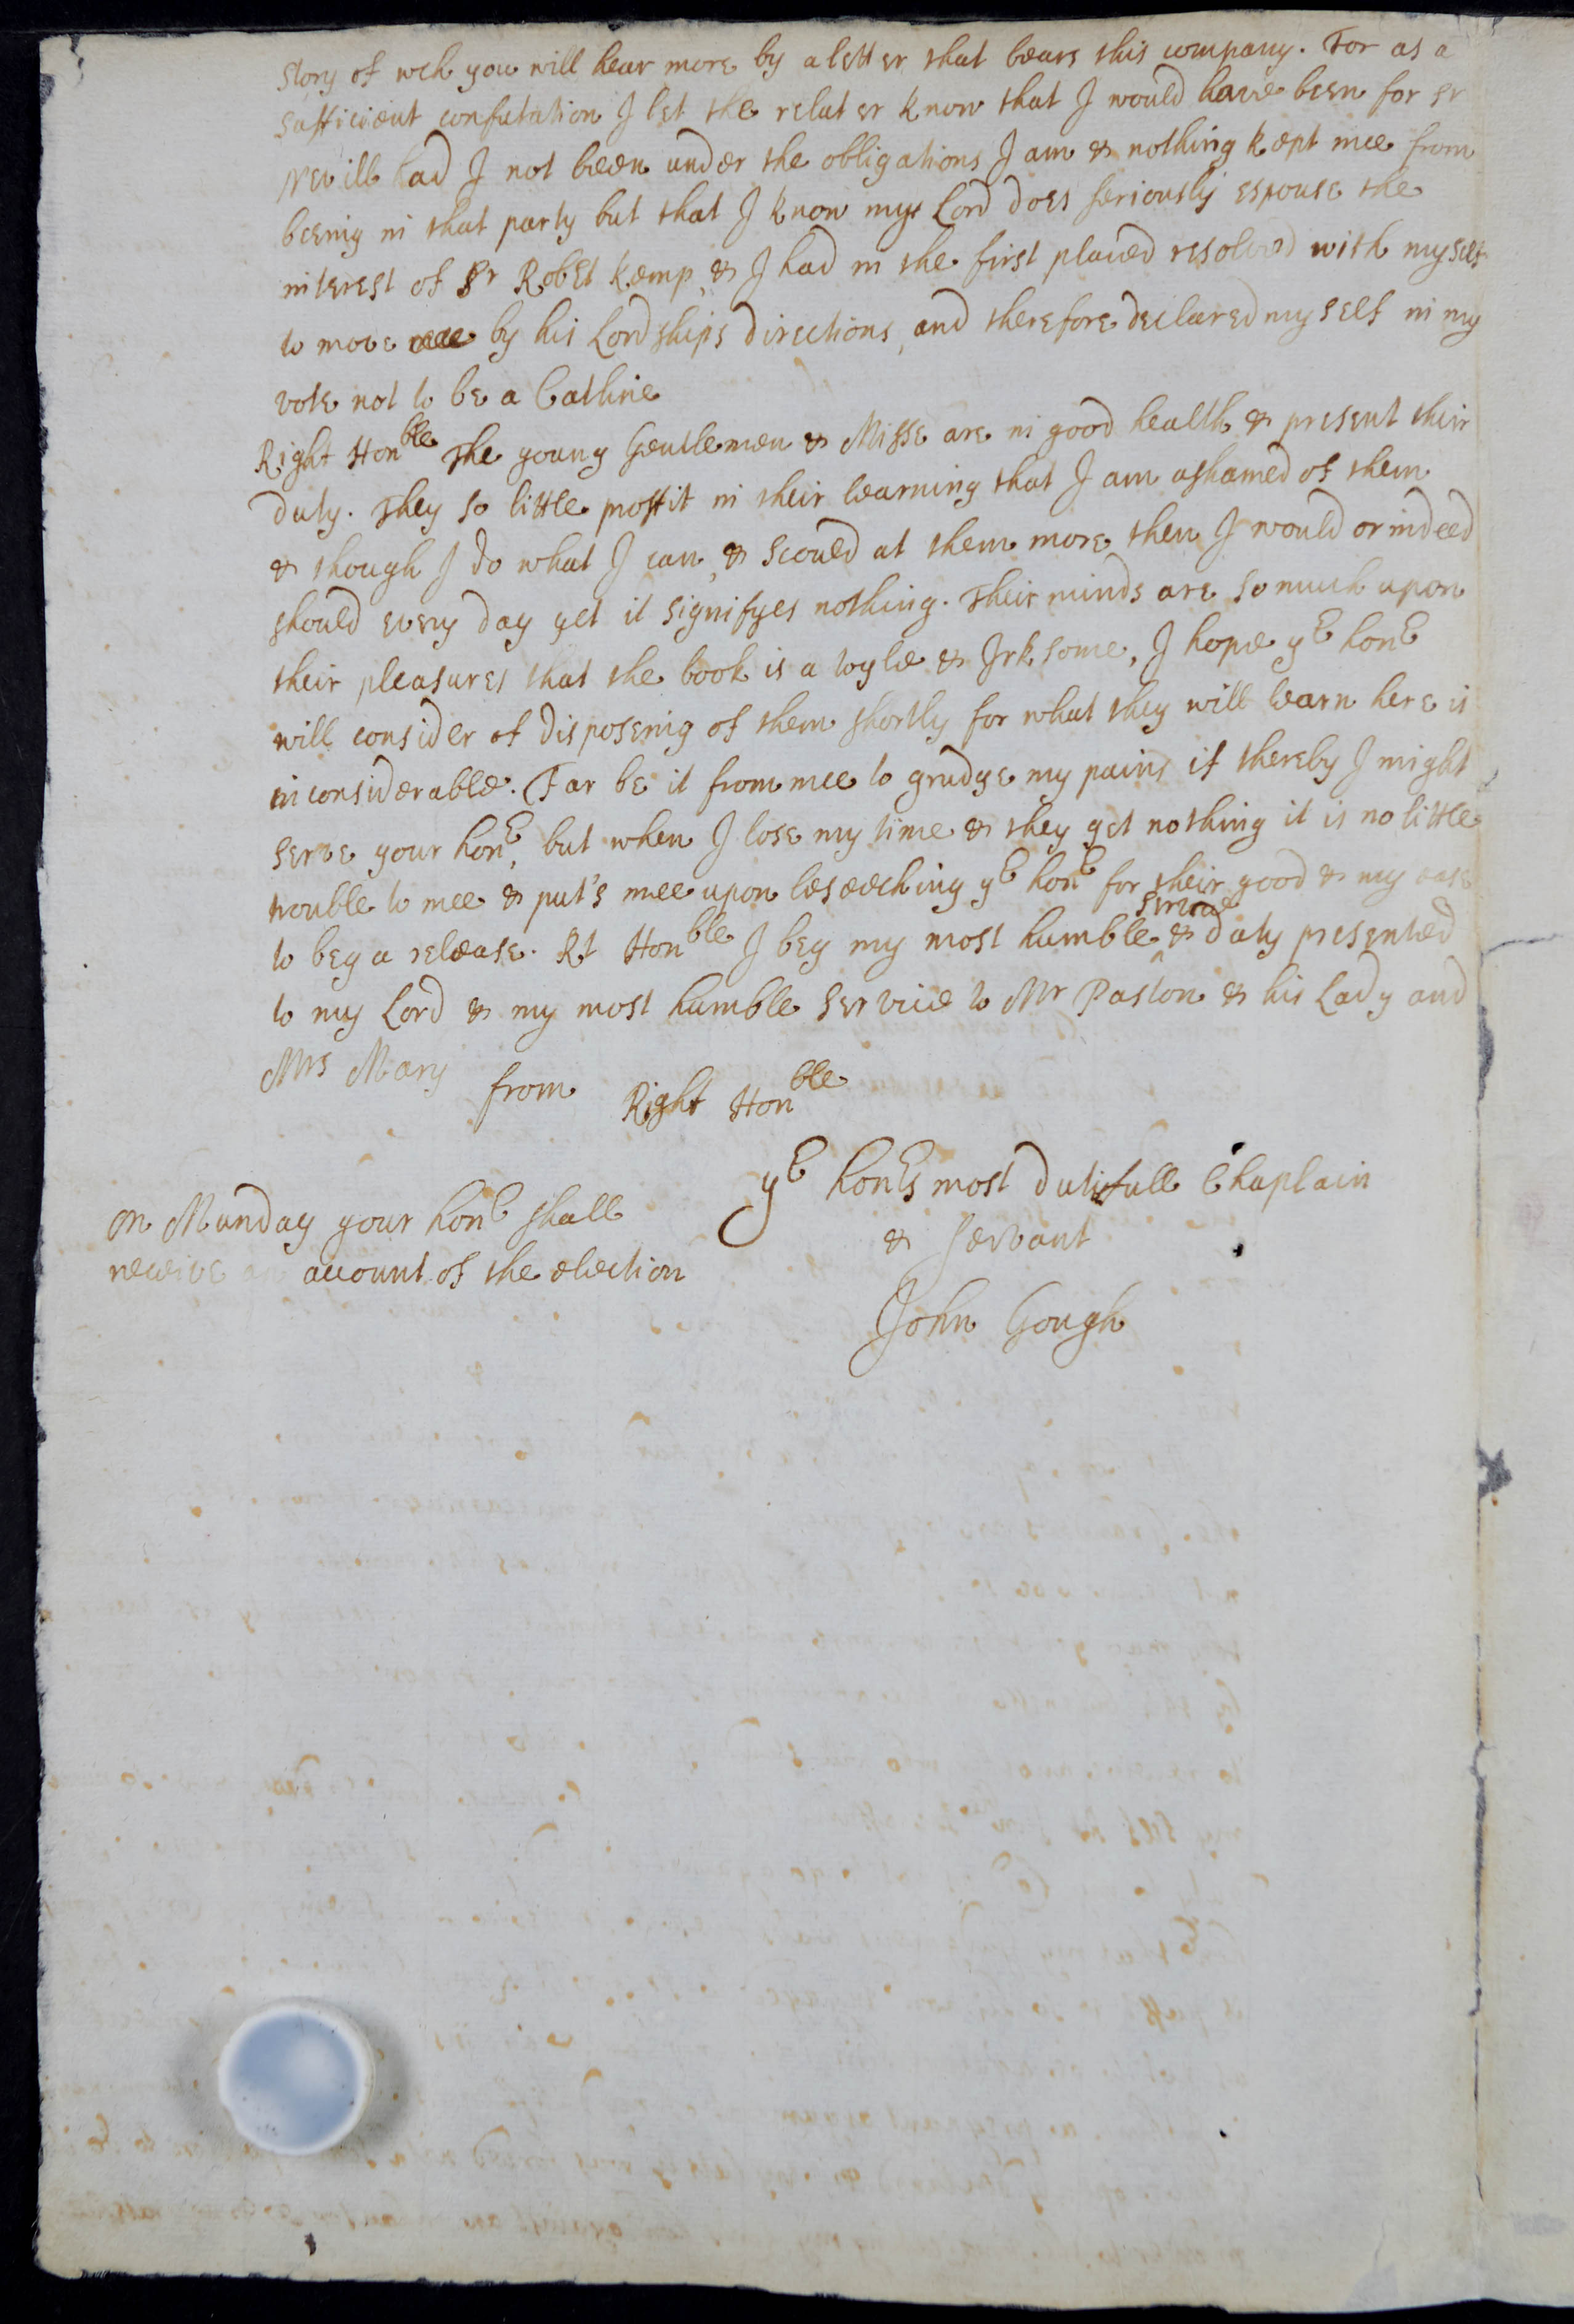 story of wch you will hear more by a letter that bears this company. For as a
sufficient confutation I let the relater know that I would have been for Sr
Nevill had I not been under the obligations I am & nothing kept mee from
beenig in that party but that I know my Lord does seriously espouse the
interest of Sr Robet Kemp, & I had in the first placed resolved with my self
to move by his Lordships directions, and therefore declared my self in my
vote not to be a Catline
Right Honble The young Gentlemen & Misse are in good health & present their
duty. They so little proffit in their learning that I am ashamed of them
& though I do what I can, & scould at them more then I would or indeed
should every day yet it signifyes nothing. Their minds are so much upon
their pleasures that the book is a toyle & Irksome, I hope yr honr
will consider of disposeing of them shortly for what they will learn here is
inconsiderable. Far be it from mee to grudge my pains if thereby I might
serve your honr, but when I lose my time & they get nothing it is no little
trouble to mee & put's mee upon beseeching yr honr for their good & my ease
to beg a release. Rt Honble I beg my most humble service & duty presented
to my Lord & my most humble service to Mr Paston & his Lady and
Mrs Mary
from Right Honble
yr honrs most dutifull Chaplain
& servant
John Gough
On Munday your honr shall
receive an account of the election